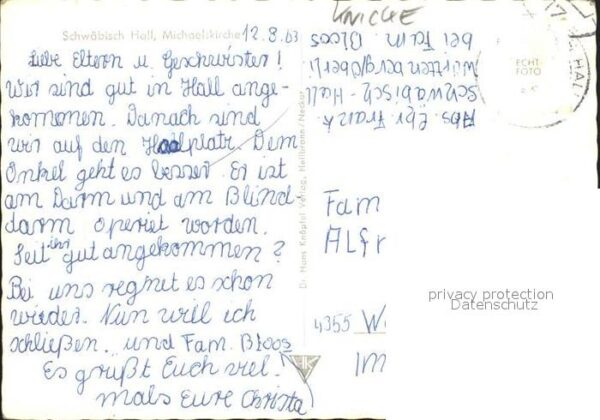 Schwäbisch Hall, Michaelskirche
12.8.63
Liebe Eltern u. Geschwister!
Wir sind gut in Hall ange-
kommen. Danach sind
wir auf den Hadlplatz. Dem
Onkel geht es besser. Er ist
am Darm und am Blind-
darm operiet worden.
Seit ihr gut angekommen?
Bei uns regnet es schon
wieder. Nun will ich
schließen. und Fam. Bloos
Es grüßt Euch viel-
mals Eure Christa
KNICKE
Abs. Chr. Franzk
Schwäbisch-Hall
Württemberg/Oberl.
bei Fam. Bloos
ECHT
FOTO
HALL
Dr. Hans Knöpfel Verlag, Heilbronn/Neckar
Fam
Alfr
4355 W
Im
privacy protection
Datenschutz